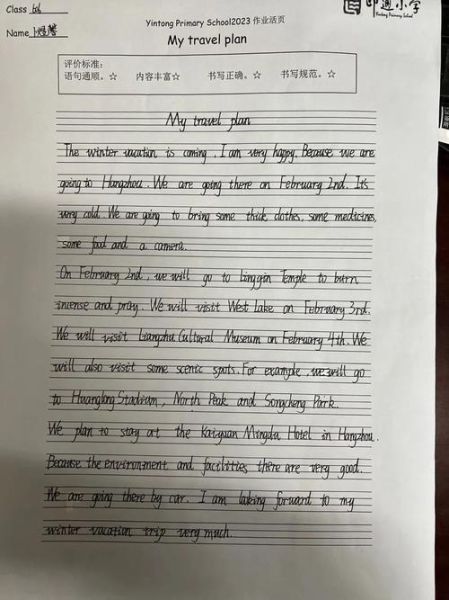 Class 6d
印通小学
Yintong Primary School
Name
Yintong Primary School2023 作业活页
My travel plan
评价标准：
语句通顺。☆ 内容丰富☆ 书写正确。☆ 书写规范。☆
My travel plan
The winter vacation is coming. I am very happy. Because we are
going to Hangzhou. We are going there on February 2nd. It's
very cold. We are going to bring some thick clothes, some medicines,
some food and a camera.
On February 2nd, we will go to Linggin Temple to burn
incense and pray. We will visit West lake on February 3rd.
We will visit Liangzhu Cultural Museum on February 4th. We
will also visit some scenic spots. For example, we will go
to Huanglong Stadium, North Peak and Songcheng Park.
We plan to stay at the Kaiyuan Mingdu Hotel in Hangzhou.
Because the environment and facilities there are very good.
We are going there by car. I am looking forward to my
winter vacation trip very much.